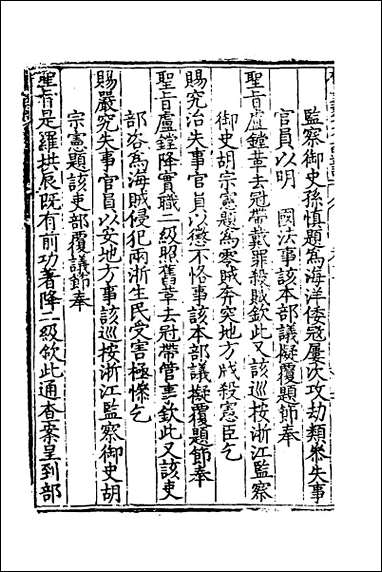 監察御史孫慎題為海洋倭冦屢次攻劫類叅失事
官員以明　國法事該本部議擬覆題節奉
聖旨盧鏜革去冠帶戴罪殺賊欽此又該巡按浙江監察
御史胡宗憲題為零賊奔突地方戕殺憲臣乞
賜究治失事官員以懲不恪事該本部議擬覆題節奉
聖旨盧鏜降實職二級照舊革去冠帶管事欽此又該吏
部咨為海賊侵犯兩浙生民受害極慘乞
賜嚴究失事官員以安地方事該巡按浙江監察御史胡
宗憲題該吏部覆議節奉
聖旨是羅拱辰既有前功著降二級欽此通查案呈到部